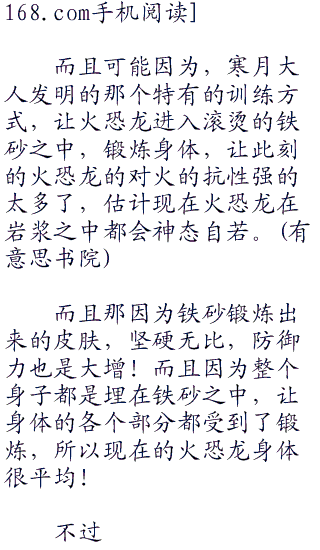 168.com手机阅读]
而且可能因为，寒月大
人发明的那个特有的训练方
式，让火恐龙进入滚烫的铁
砂之中，锻炼身体，让此刻
的火恐龙的对火的抗性强的
太多了，估计现在火恐龙在
岩浆之中都会神态自若。(有
意思书院)
而且那因为铁砂锻炼出
来的皮肤，坚硬无比，防御
力也是大增！而且因为整个
身子都是埋在铁砂之中，让
身体的各个部分都受到了锻
炼，所以现在的火恐龙身体
很平均！
不过